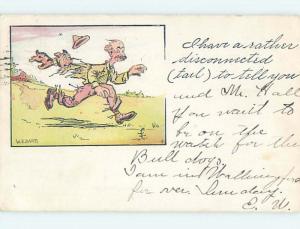 I have a rather
disconnected
(tail) to tell you
and Mr. Hall
You want to
be on the
watch for the
Bull dogs.
I am in
for over
E. W.